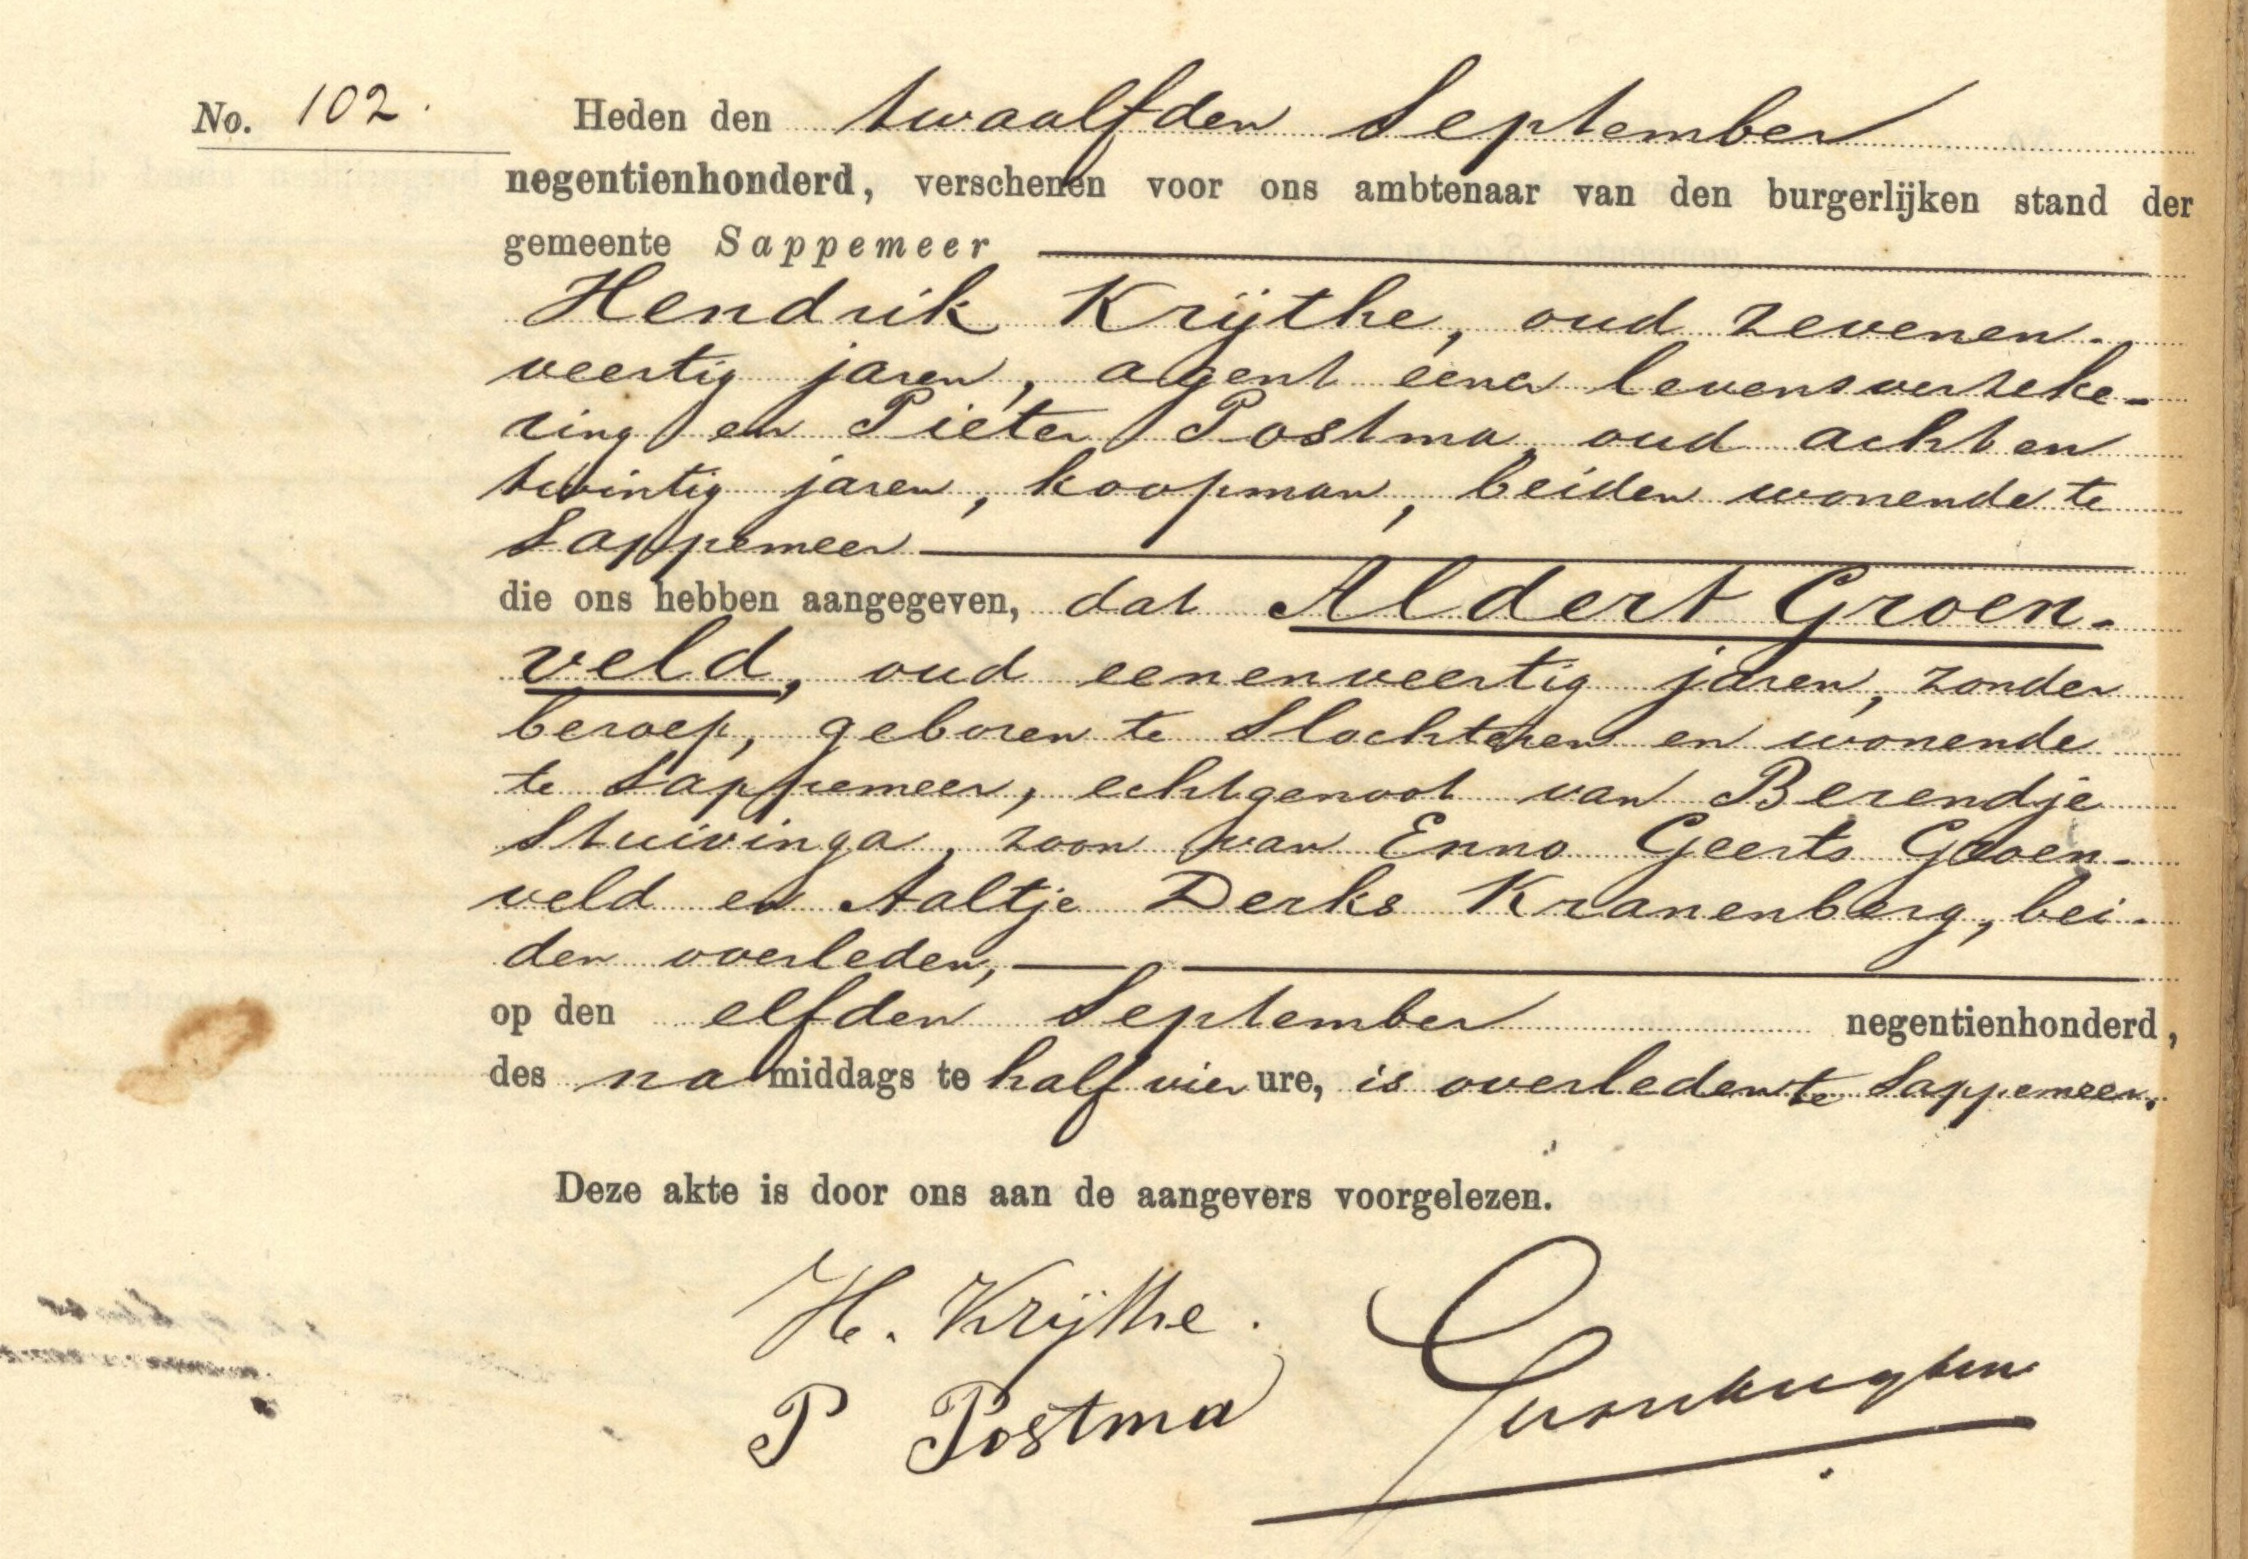 No. 102.
Heden den twaalfden September
negentienhonderd, verschenen voor ons ambtenaar van den burgerlijken stand der
gemeente Sappemeer
Hendrik Krijthe, oud zevenen-
veertig jaren, agent eener levensverzeke-
ring en Pieter Postma oud achten
twintig jaren, koopman, beiden wonende te
Sappemeer
die ons hebben aangegeven, dat Aldert Groen-
veld, oud eenenveertig jaren, zonder
beroep, geboren te Slochteren en wonende
te Sappemeer, echtgenoot van Berendje
Stuivinga, zoon van Enno Geerts Groen-
veld en Aaltje Derks Kranenberg, bei-
den overleden,
op den elfden September negentienhonderd,
des namiddags te half vier ure, is overleden te Sappemeer.
Deze akte is door ons aan de aangevers voorgelezen.
H. Krijthe.
P Postma